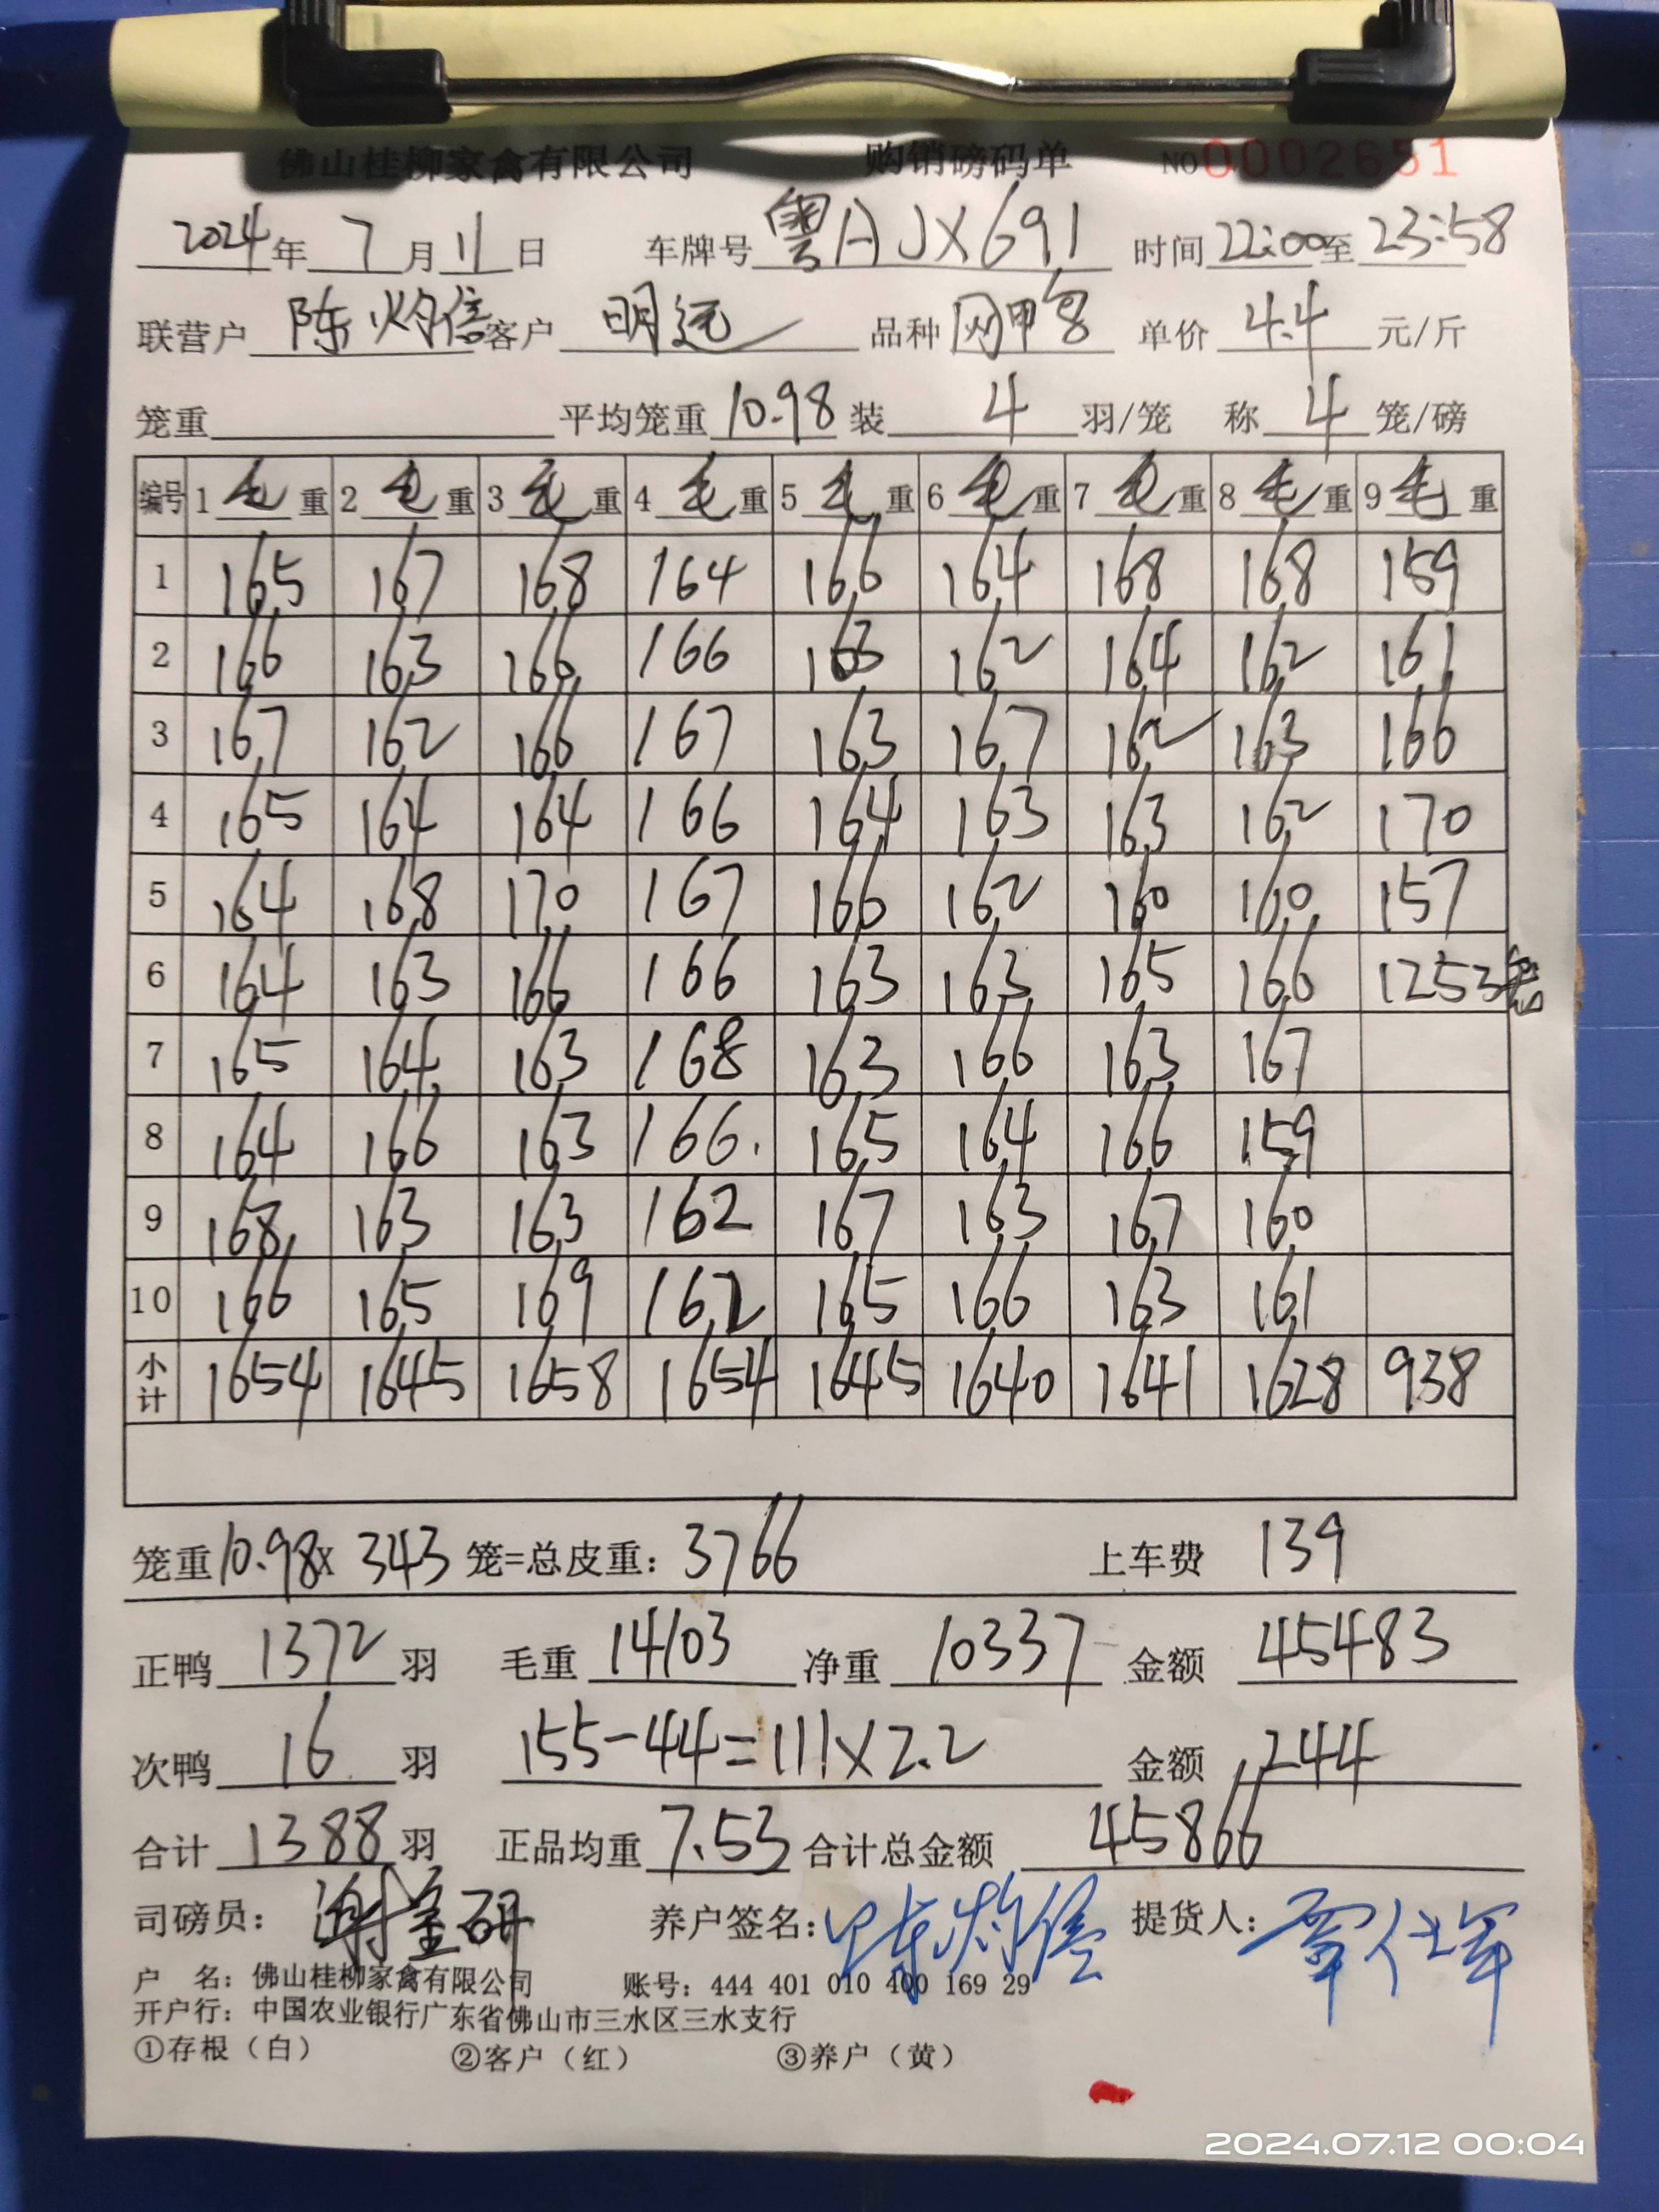 佛山桂柳家禽有限公司 购销磅码单 NO 0002651
2024年 7月 11日 车牌号 粤AJX691 时间 22:00至 23:58
联营户 陈灼信 客户 明远 品种 单价 4.4 元/斤
笼重 平均笼重 10.98 装 4 羽/笼 称 4 笼/磅
编号 1毛重 2毛重 3毛重 4毛重 5毛重 6毛重 7毛重 8毛重 9毛重
1 165 167 168 164 166 164 168 168 159
2 166 163 166 166 163 162 164 162 161
3 167 162 166 167 163 167 162 163 166
4 165 164 164 166 164 163 163 162 170
5 164 168 170 167 166 162 160 160 157
6 164 163 166 166 163 163 165 166 1253笼
7 165 164 163 168 163 166 163 167
8 164 166 163 166. 165 164 166 159
9 168 163 163 162 167 163 167 160
10 166 165 169 162 165 166 163 161
小计 1654 1645 1658 1654 1645 1640 1641 1628 938
笼重 10.98 X 343 笼=总皮重: 3766 上车费 139
正鸭 1372 羽 毛重 14103 净重 10337 金额 45483
次鸭 16 羽 155-44=111×2.2 金额 244
合计 1388 羽 正品均重 7.53 合计总金额 45866
司磅员: 养户签名: 陈灼信 提货人:
户 名: 佛山桂柳家禽有限公司 账号: 444 401 010 400 169 29
开户行: 中国农业银行广东省佛山市三水区三水支行
①存根(白) ②客户(红) ③养户(黄)
2024.07.12 00:04